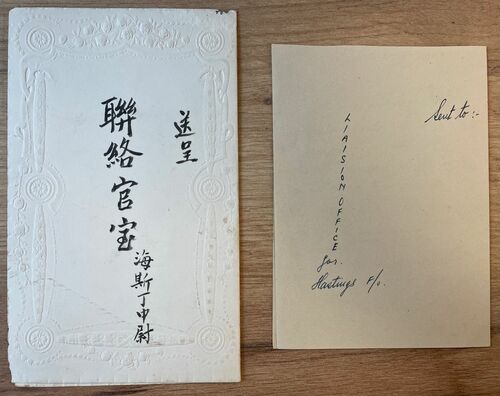 送呈
聯絡官室
海斯丁中尉
Sent to :-
LIAISION OFFICE
Jas.
Hastings F/o.